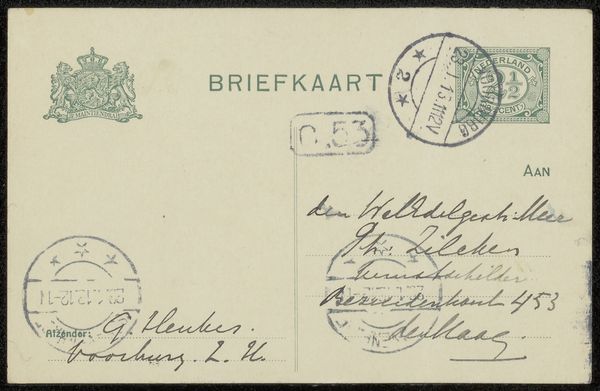 JE MAINTIENDRAI
BRIEFKAART
NEDERLAND
2½
CENT
VOORBURG
23.1.13.11-12V
2
C.53
AAN
den WelEdelgestr. Heer
Ph. Zilcken
Kunstschilder
Bezuidenhout 453
den Haag
23.1.13.12-1
Afzender: G. Henkes.
Voorburg Z. H.